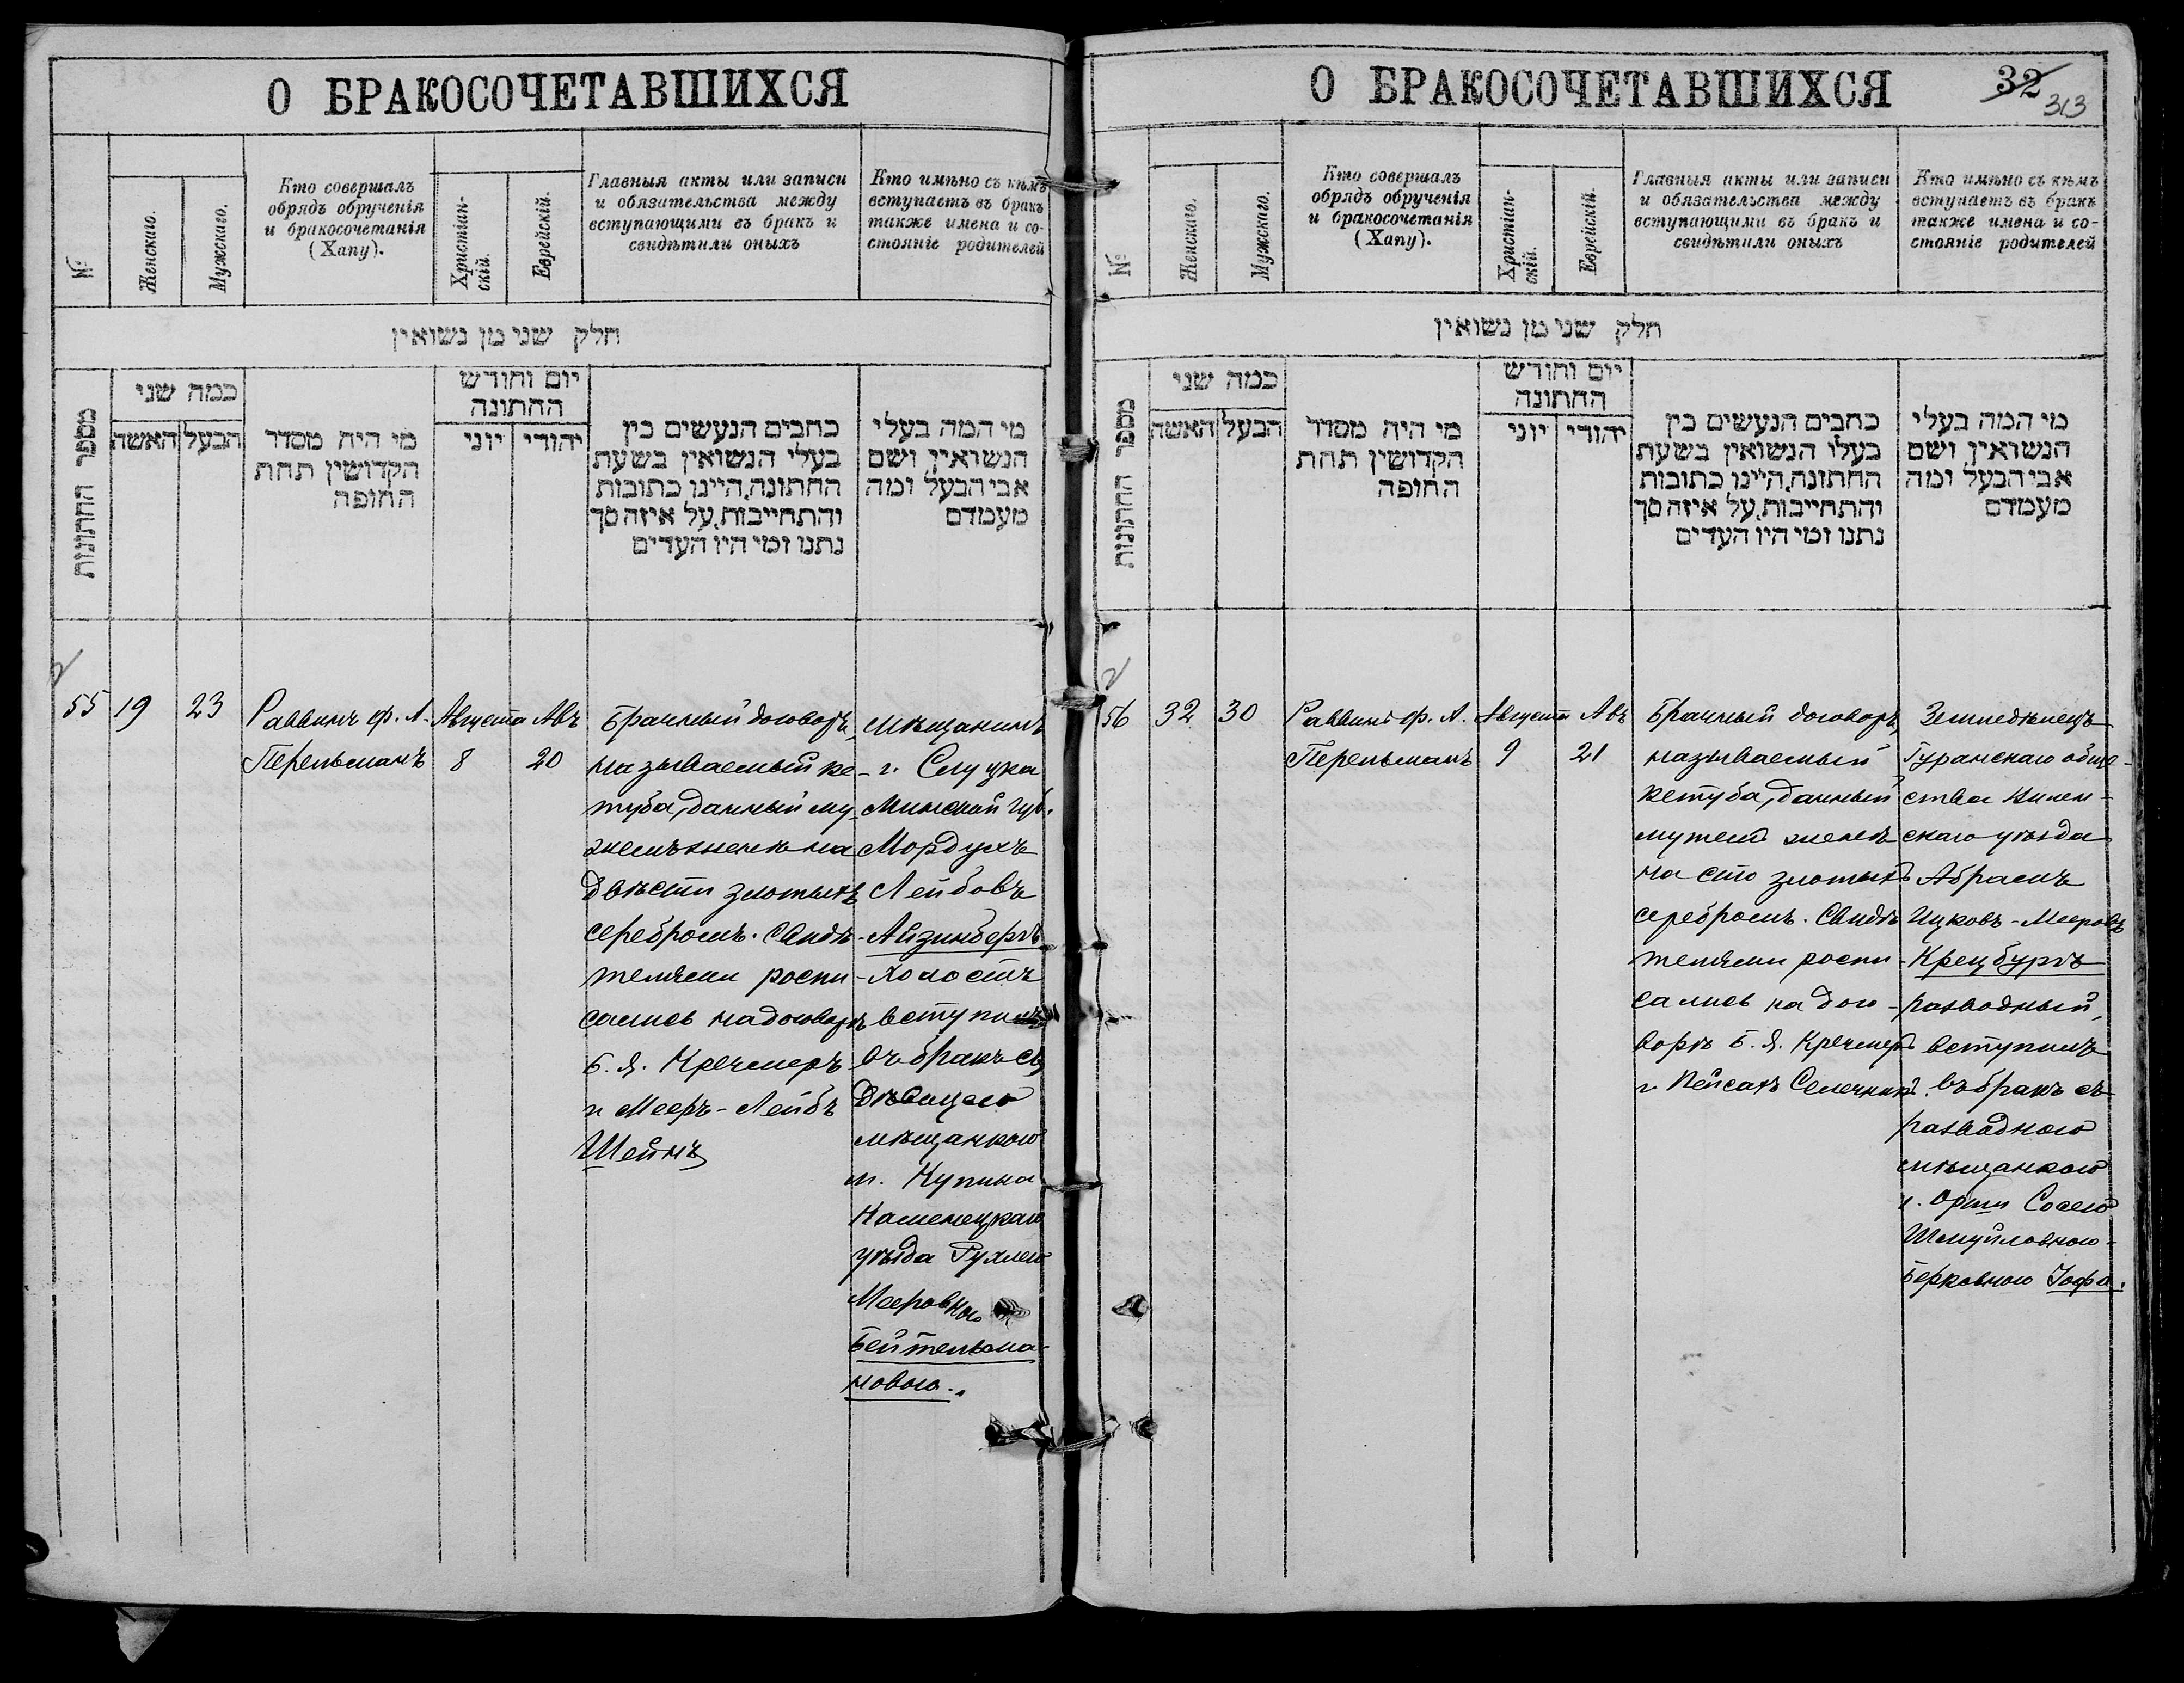 О БРАКОСОЧЕТАВШИХСЯ
№
Женскаго.
Мужскаго.
Кто совершалъ
обрядъ обрученія
и бракосочетанія
(Хапу).
Христіан-
скій.
Еврейскій.
Главныя акты или записи
и обязательства между
вступающими въ бракъ и
свидѣтили оныхъ
Кто имѣно съ кѣмъ
вступаетъ въ бракъ
также имена и со-
стояніе родителей
חלק שני מן נשואין
מספר החתונות
כמה שני
האשה
הבעל
מי היה מסדר
הקדושין תחת
החופה
יום וחודש
החתונה
יוני
יהודי
כתבים הנעשים בין
בעלי הנשואין בשעת
החתונה, היינו כתובות
והתחייבות, על איזה סך
נתנו ומי היו העדים
מי המה בעלי
הנשואין, ושם
אבי הבעל ומה
מעמדם
55
19
23
Раввинъ ф. А.
Перельманъ
Августа
8
Авъ
20
Брачный договоръ,
называемый ке-
туба, данный му-
жемъ женѣ на
двѣсти злотыхъ
серебромъ. Свидѣ-
телями роспи-
сались на договорѣ
Б. Я. Кречмеръ
и Мееръ-Лейбъ
Шейнъ
Мѣщанинъ
г. Слуцка
Минской губ.
Мордухъ
Лейбовъ
Айзинбергъ
холостъ
вступилъ
въ бракъ съ
дѣвицею
мѣщанкою
м. Купина
Каменецкаго
уѣзда Рухлею
Мееровною
Бейтельма-
новою.
О БРАКОСОЧЕТАВШИХСЯ
32
313
№
Женскаго.
Мужскаго.
Кто совершалъ
обрядъ обрученія
и бракосочетанія
(Хапу).
Христіан-
скій.
Еврейскій.
Главныя акты или записи
и обязательства между
вступающими въ бракъ и
свидѣтили оныхъ
Кто имѣно съ кѣмъ
вступаетъ въ бракъ
также имена и со-
стояніе родителей
חלק שני מן נשואין
מספר החתונות
כמה שני
האשה
הבעל
מי היה מסדר
הקדושין תחת
החופה
יום וחודש
החתונה
יוני
יהודי
כתבים הנעשים בין
בעלו הנשואין בשעת
החתונה, היינו כתובות
והתחייבות, על איזה סך
נתנו ומי היו העדים
מי המה בעלי
הנשואין ושם
אבי הבעל ומה
מעמדם
56
32
30
Раввинъ ф. А.
Перельманъ
Августа
9
Авъ
21
Брачный договоръ,
называемый
кетуба, данный
мужемъ женѣ
на сто злотыхъ
серебромъ. Свидѣ-
телями роспи-
сались на дого-
ворѣ Б. Я. Кречмеръ
и Пейсахъ Селечникъ.
Земледѣлецъ
Гуранскаго обще-
ства Вилен-
скаго уѣзда
Абрамъ
Ицковъ-Мееровъ
Крецбургъ
разводный,
вступилъ
въ бракъ съ
разводною
мѣщанкою
г. Орши Сосею
Шмуйловною-
Берковною Іофа.